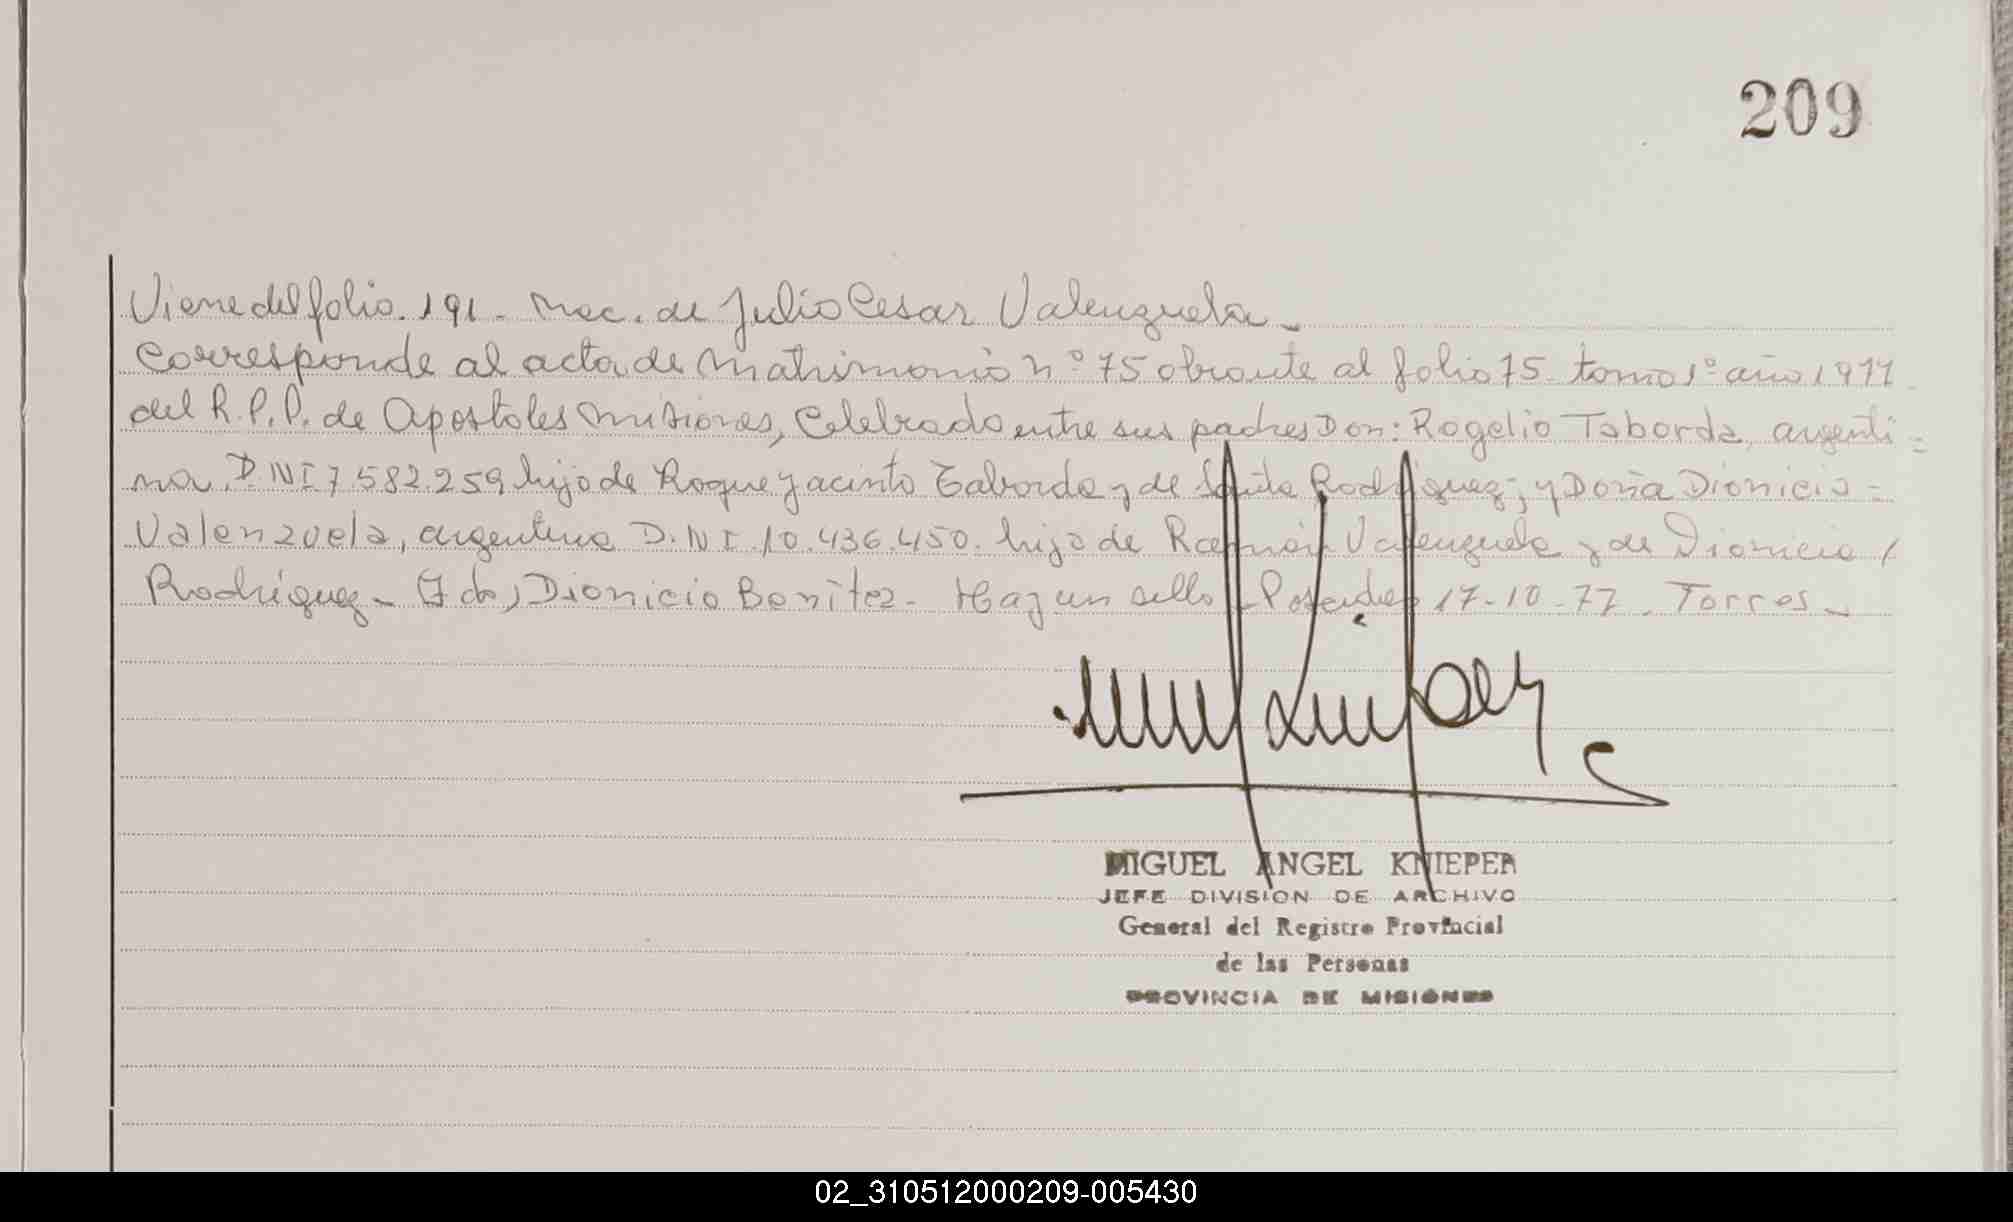 209
Viene del folio. 191 - Nac. de Julio Cesar Valenzuela -
Corresponde al acta de Matrimonio nº 75 obrante al folio 75 - tomo 1º año 1977
del R.P.P. de Apostoles Misiones, Celebrado entre sus padres Don: Rogelio Taborda, argenti =
no, D.N.I 7.582.259 hijo de Roque Jacinto Taborda y de Rodriguez; y Doña Dionicia -
Valenzuela, argentina D.N.I. 10.436.450. hija de Ramón Valenzuela y de Dionicia /
Rodríguez - (Fdo) Dionicio Benitez - Hay un sello - Posadas 17-10-77. Torres -
MIGUEL ANGEL KNIEPER
JEFE DIVISION DE ARCHIVO
General del Registro Provincial
de las Personas
PROVINCIA DE MISIONES
02_310512000209-005430